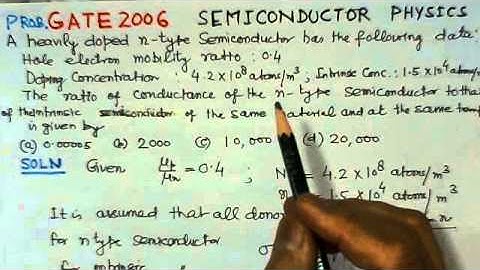 PROB. GATE 2006 SEMICONDUCTOR PHYSICS
A heavily doped n-type Semiconductor has the following data:
Hole electron mobility ratio : 0.4
Doping Concentration : 4.2 × 10⁸ atoms/m³, Intrinsic Conc. : 1.5 × 10⁴ atoms/
The ratio of conductance of the n-type semiconductor to that
of the Intrinsic semiconductor of the same material and at the same temp
is given by
(a) 0.00005 (b) 2000 (c) 10,000 (d) 20,000
SOLN Given μp/μn = 0.4; N 4.2 × 10⁸ atoms/m³
1.5 × 10⁴ atoms/m³
It is assumed that all dono
for n type semiconductor σ
for intrinsic